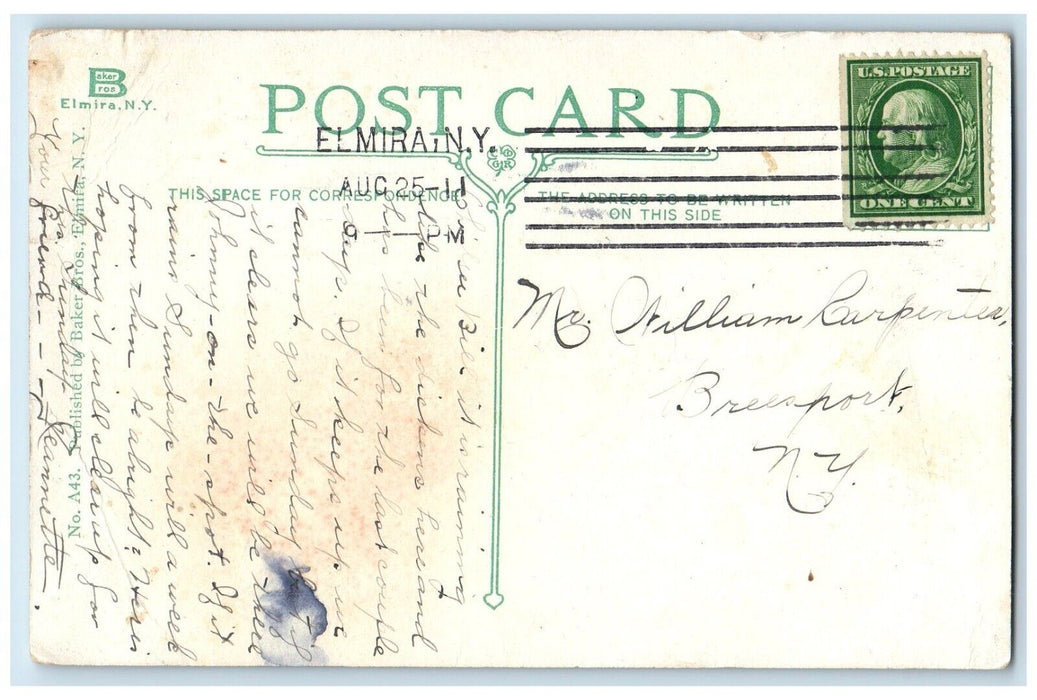 Baker Bros
Elmira, N.Y.
POST CARD
U.S. POSTAGE
ONE CENT
ELMIRA, N.Y.
AUG 25-11
9 — PM
THIS SPACE FOR CORRESPONDENCE
THE ADDRESS TO BE WRITTEN
ON THIS SIDE
No. A43. Published by Baker Bros., Elmira, N. Y.
Bill it is raining
like the dickens here and
has been for the last couple
days. If it keeps up we
cannot go Sunday but if
it clears we will be there
Johnny-on-the-spot. If it
rains Sunday will a week
from then be alright? Here's
hoping it will clear up for
Sunday
Your friend - - Jeannette.
Mr. William Carpenter,
Breesport,
N.Y.